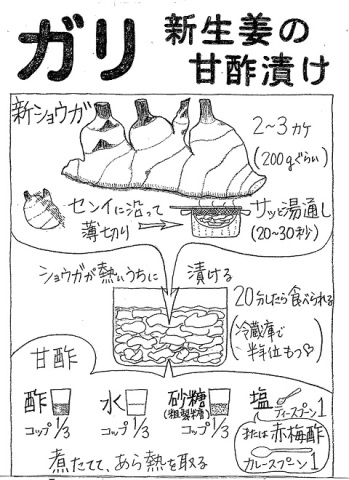 ガリ
新生姜の
甘酢漬け
新ショウガ
2~3カケ
(200gぐらい)
センイに沿って
薄切り
サッと湯通し
(20~30秒)
ショウガが熱いうちに 漬ける
20分したら食べられる
(冷蔵庫で
半年位もつ♡)
甘酢
酢
コップ1/3
水
コップ1/3
砂糖
(粗製糖)
コップ1/3
塩
ティースプーン1
または赤梅酢
カレースプーン1
煮たてて、あら熱を取る